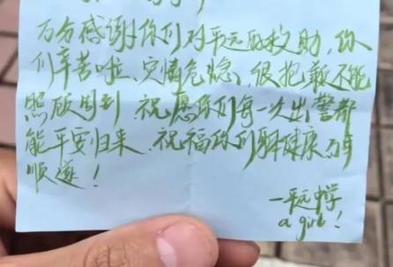 万分感谢你们对平远的救助，你
们辛苦啦、灾情危急、很抱歉不能
照顾周到 祝愿你们每一次出警都
能平安归来，祝福你们身体健康 万事
顺遂！
—平远中学
a girl！